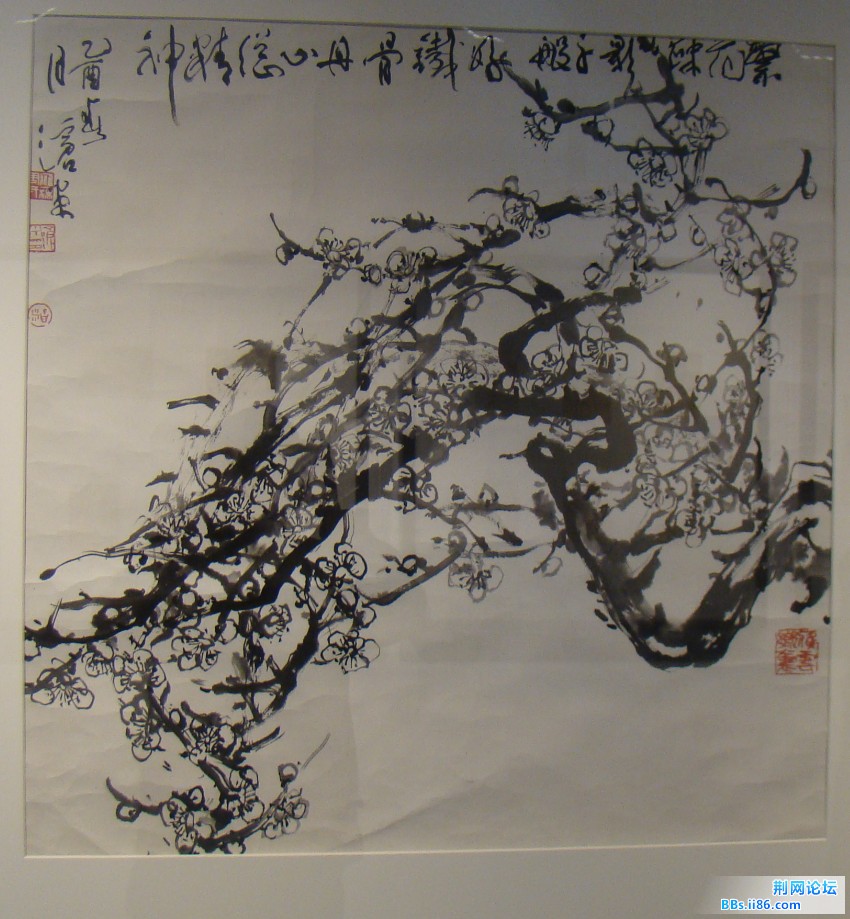 繁花疎影千般好鐵骨丹心總精神
乙酉春
月
荆网论坛
BBs.ii86.com